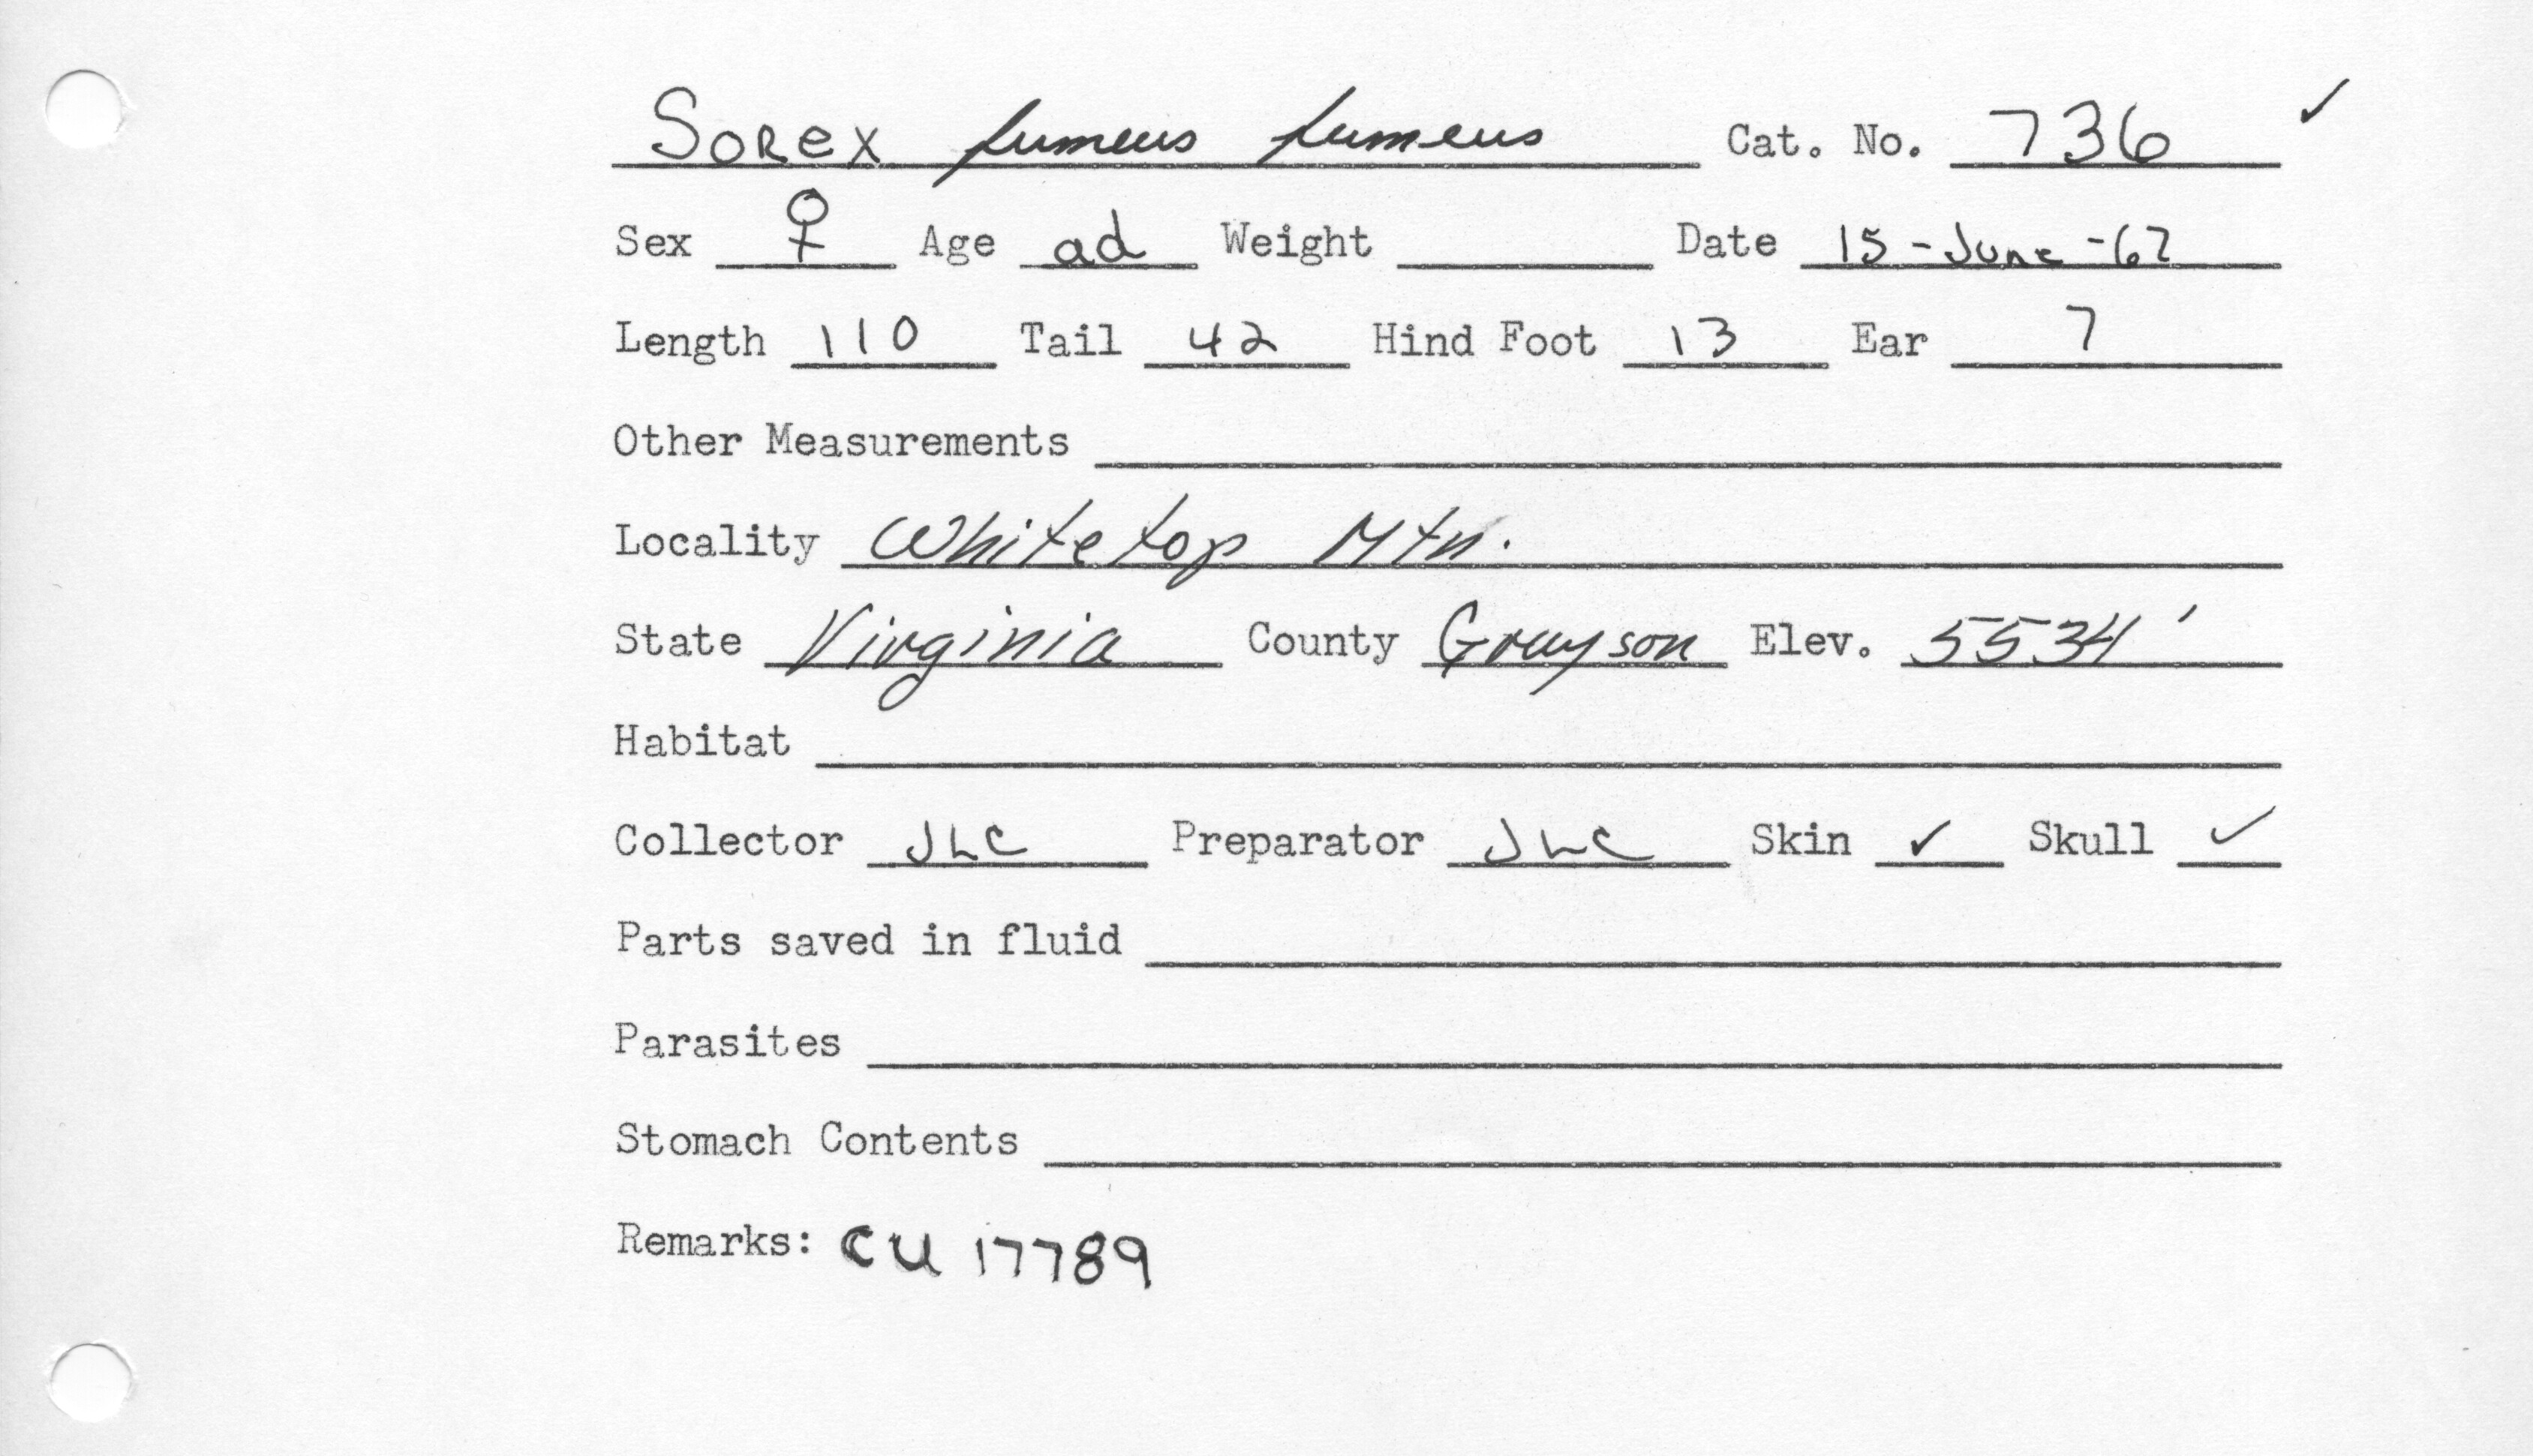 Sorex fumeus fumeus Cat. No. 736 ✓
Sex ♀ Age ad Weight Date 15-June-62
Length 110 Tail 42 Hind Foot 13 Ear 7
Other Measurements
Locality Whitetop Mtn.
State Virginia County Grayson Elev. 5534'
Habitat
Collector JLC Preparator JLC Skin ✓ Skull ✓
Parts saved in fluid
Parasites
Stomach Contents
Remarks: CU 17789